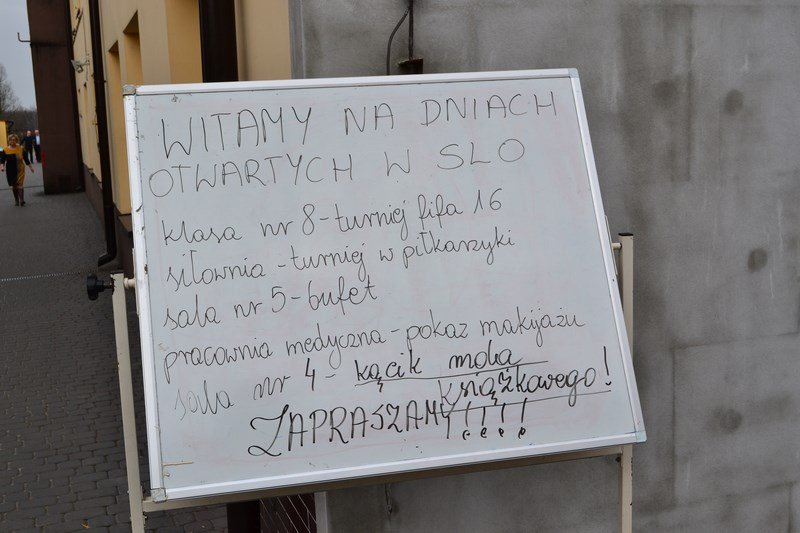 WITAMY NA DNIACH
OTWARTYCH W SLO
klasa nr 8 - turniej fifa 16
siłownia - turniej w piłkarzyki
sala nr 5 - bufet
pracownia medyczna - pokaz makijażu
sala nr 4 - kącik mola
książkowego!
ZAPRASZAMY!!!!!